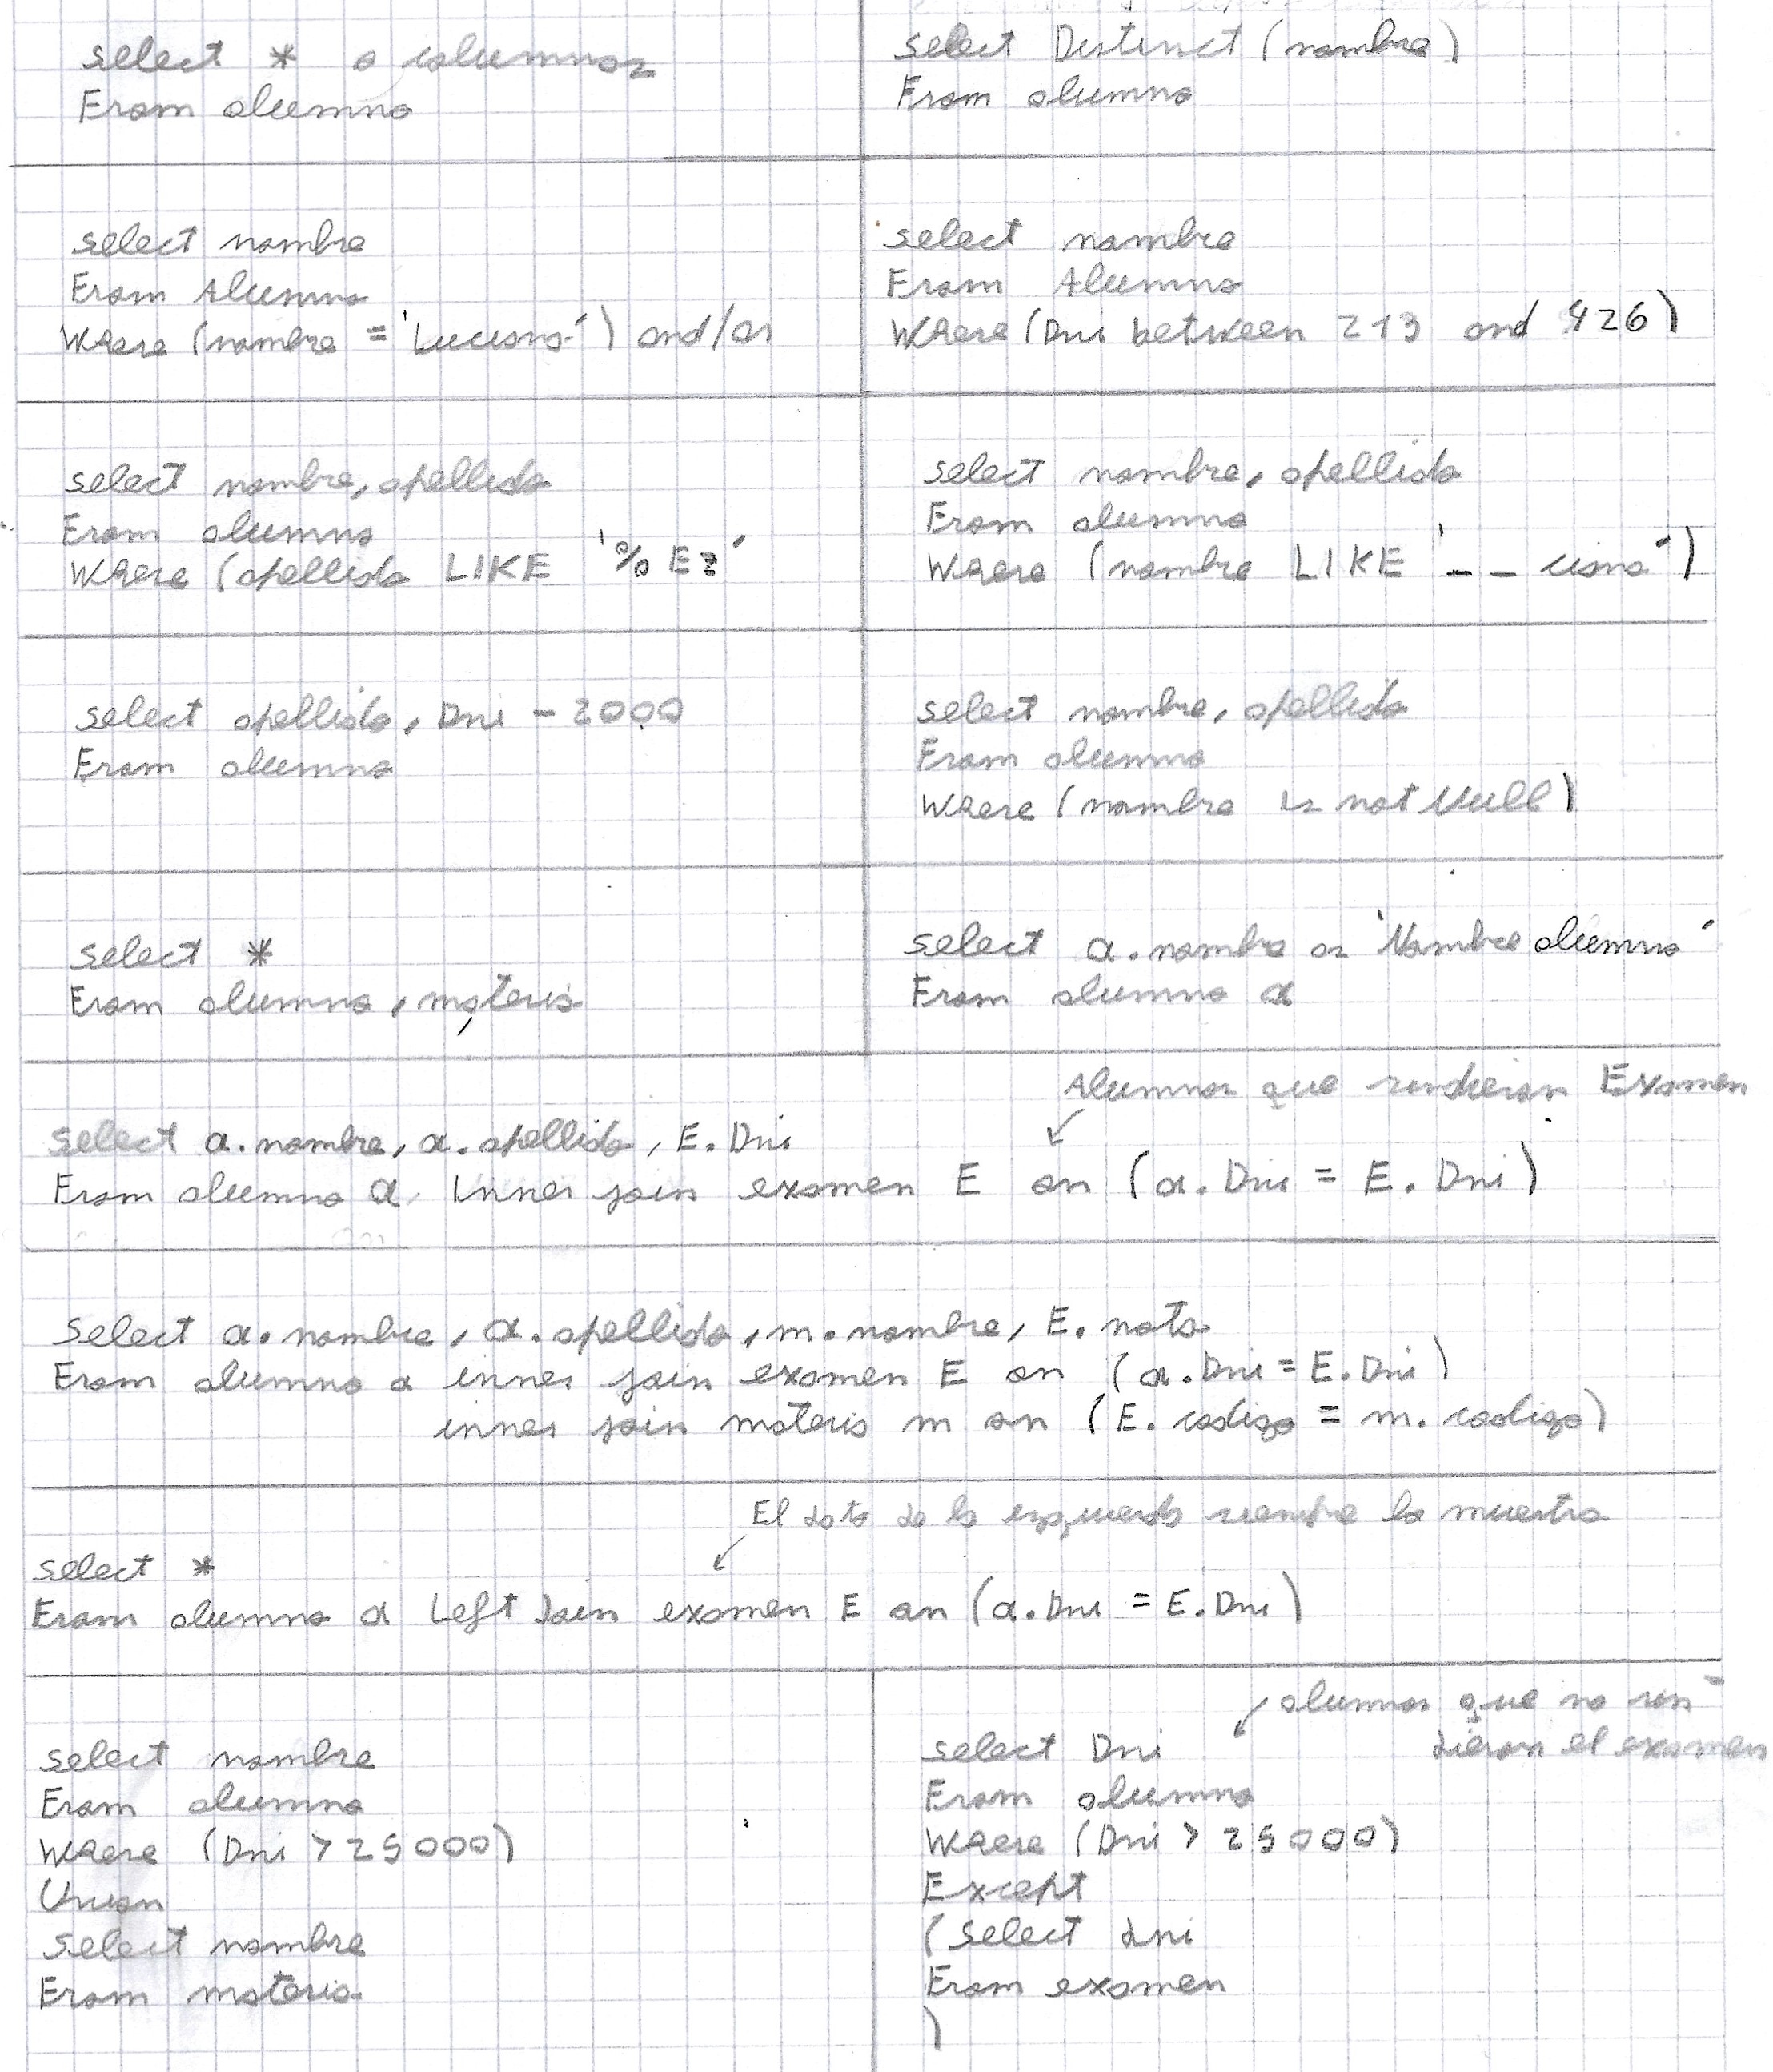 select * o columnas
From alumno
select Distinct (nombre)
From alumno
select nombre
From Alumno
Where (nombre = 'Luciano') and/or
select nombre
From Alumno
Where (Dni between 213 and 426)
select nombre, apellido
From alumno
Where (apellido LIKE '%Ez'
select nombre, apellido
From alumno
Where (nombre LIKE '_ _ ciano')
select apellido, Dni - 2000
From alumno
select nombre, apellido
From alumno
Where (nombre is not Null)
select *
From alumno, materia
select a.nombre as 'Nombre alumno'
From alumno a
Alumnos que rindieron Examen
select a.nombre, a.apellido, E.Dni
From alumno a Inner join examen E on (a.Dni = E.Dni)
Select a.nombre, a.apellido, m.nombre, E.nota
From alumno a inner join examen E on (a.Dni = E.Dni)
inner join materia m on (E.codigo = m.codigo)
El dato de la izquierda siempre lo muestra
select *
From alumno a Left Join examen E on (a.Dni = E.Dni)
select nombre
From alumno
Where (Dni > 25000)
Union
Select nombre
From materia
alumnos que no ren-
dieron el examen
select Dni
From alumno
Where (Dni > 25000)
Except
(Select dni
From examen
)